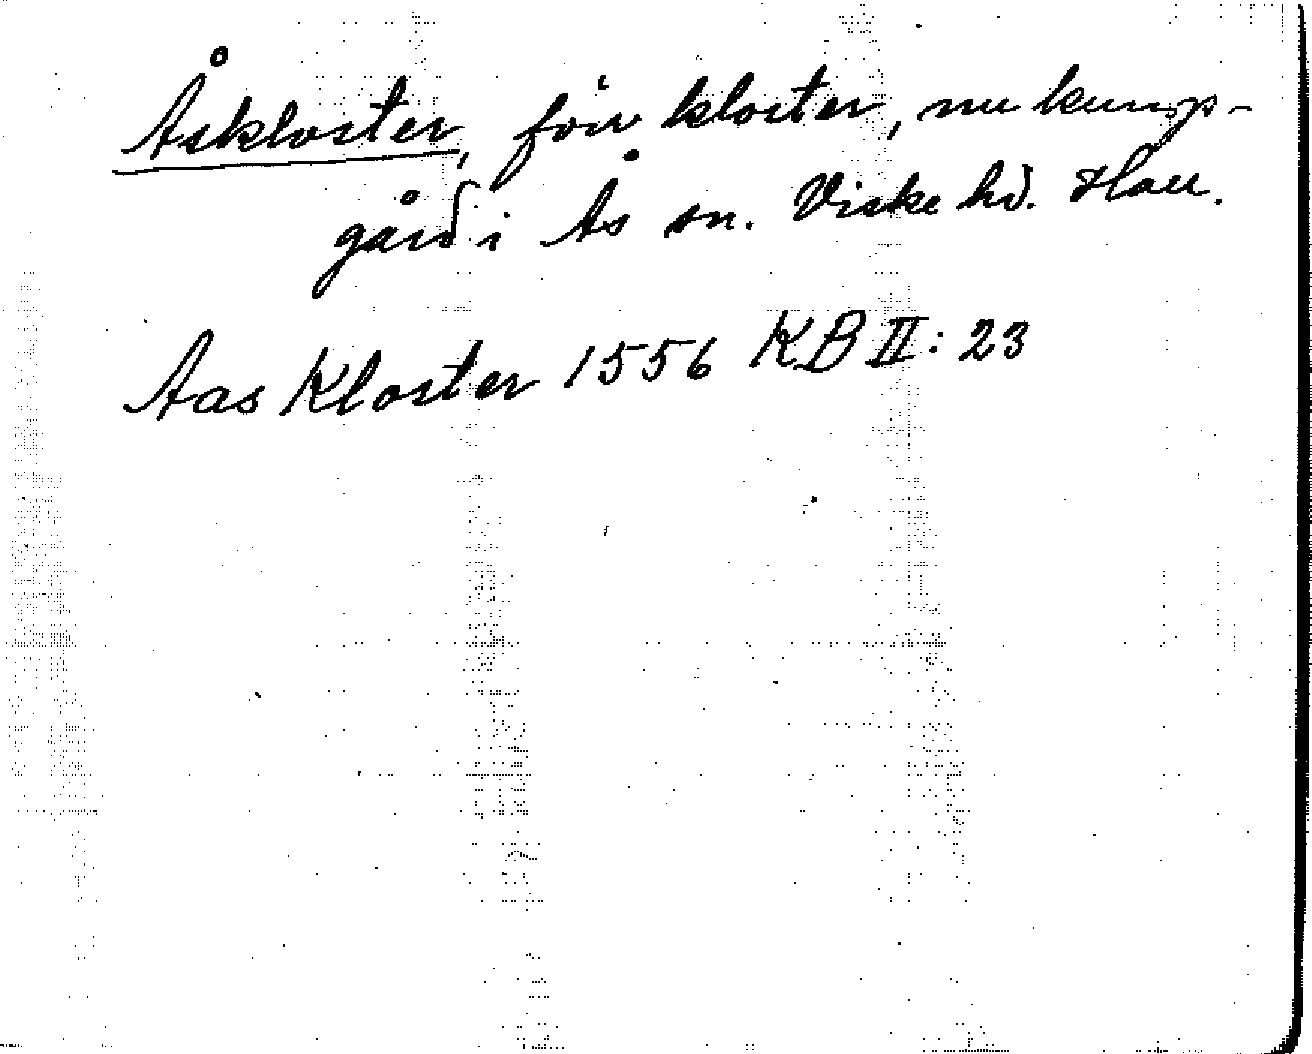 Åskloster, förr kloster, nu kungs-
gård i Ås sn. Viske hd. Hall.
Aas Kloster 1556 KB II: 23